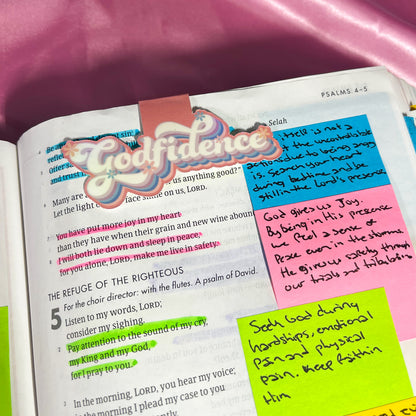 PSALMS 4–5
Selah
Godfidence
us anything good?"
Many are
Let the light face shine on us, LORD.
7 You have put more joy in my heart
than they have when their grain and new wine abound.
8 I will both lie down and sleep in peace,
for you alone, LORD, make me live in safety.
THE REFUGE OF THE RIGHTEOUS
For the choir director: with the flutes. A psalm of David.
5 Listen to my words, LORD;
consider my sighing.
2 Pay attention to the sound of my cry,
my King and my God,
for I pray to you.
3 In the morning, LORD, you hear my voice;
in the morning I plead my case to you
itself is not a
the uncontrollable
actions due to being angry
is. Search your heart
during bedtime and be
still in the Lord's presence
God gives us Joy.
By being in His presence
we feel a sense of
Peace even in the
He gives us safety through
our trials and tribulation
Seek God during
hardships, emotional
pain and physical
pain. Keep faith in
Him